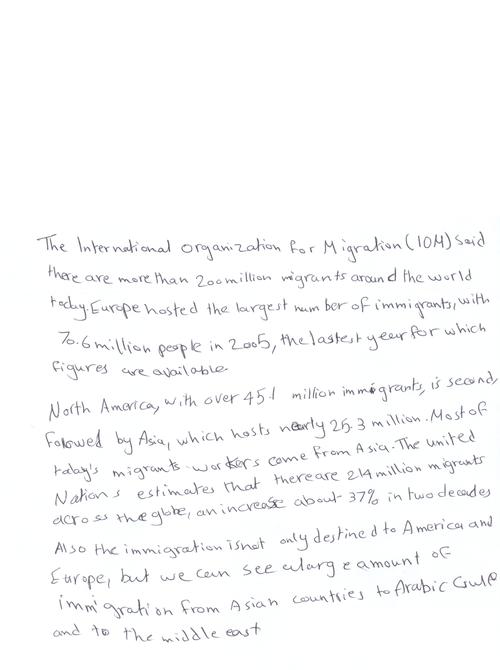 The International Organization for Migration (IOM) said
there are more than 200 million migrants around the world
today. Europe hosted the largest number of immigrants, with
70.6 million people in 2005, the lastest year for which
figures are available.
North America, with over 45.1 million immigrants, is second,
followed by Asia, which hosts nearly 25.3 million. Most of
today's migrants workers come from Asia. The united
Nations estimates that there are 214 million migrants
across the globe, an increase about 37% in two decades
Also the immigration is not only destined to America and
Europe, but we can see a large amount of
immigration from Asian countries to Arabic Gulf
and to the middle east